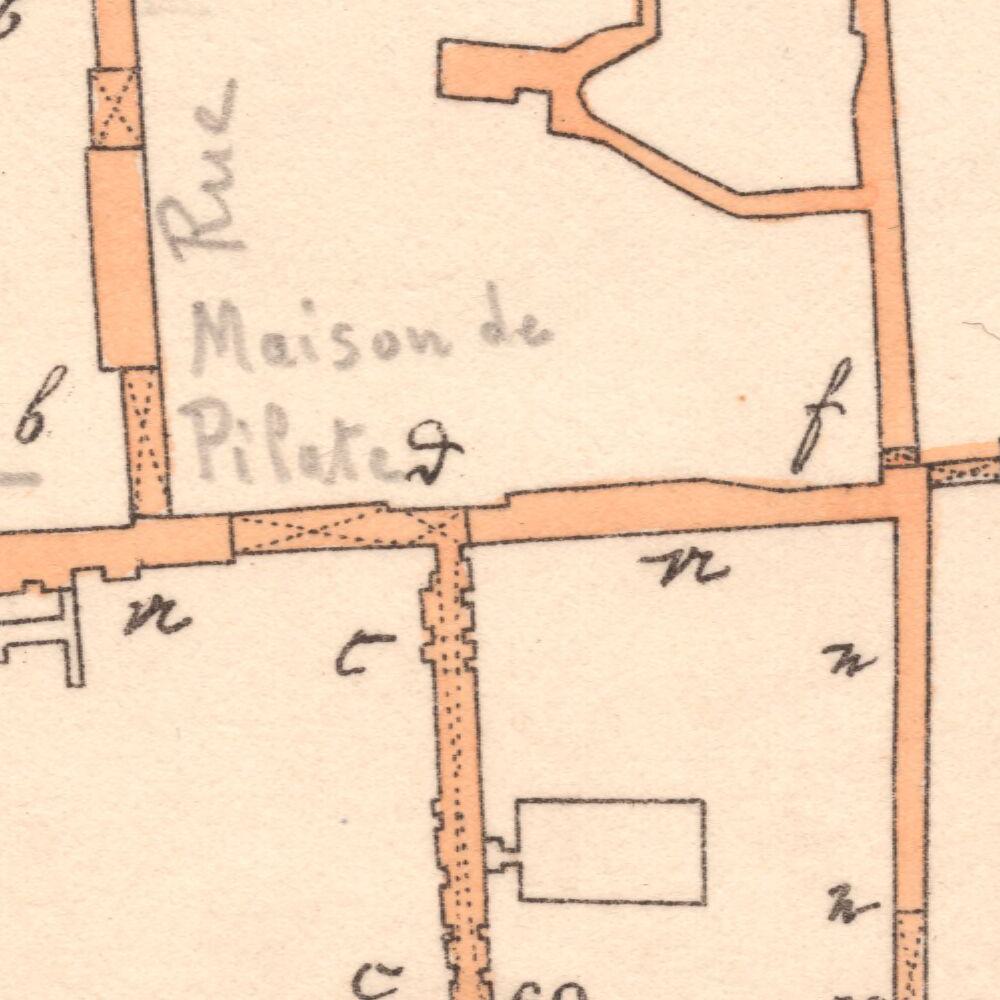 Rue
Maison de
Pilate
b
f
n
n
c
n
n
c